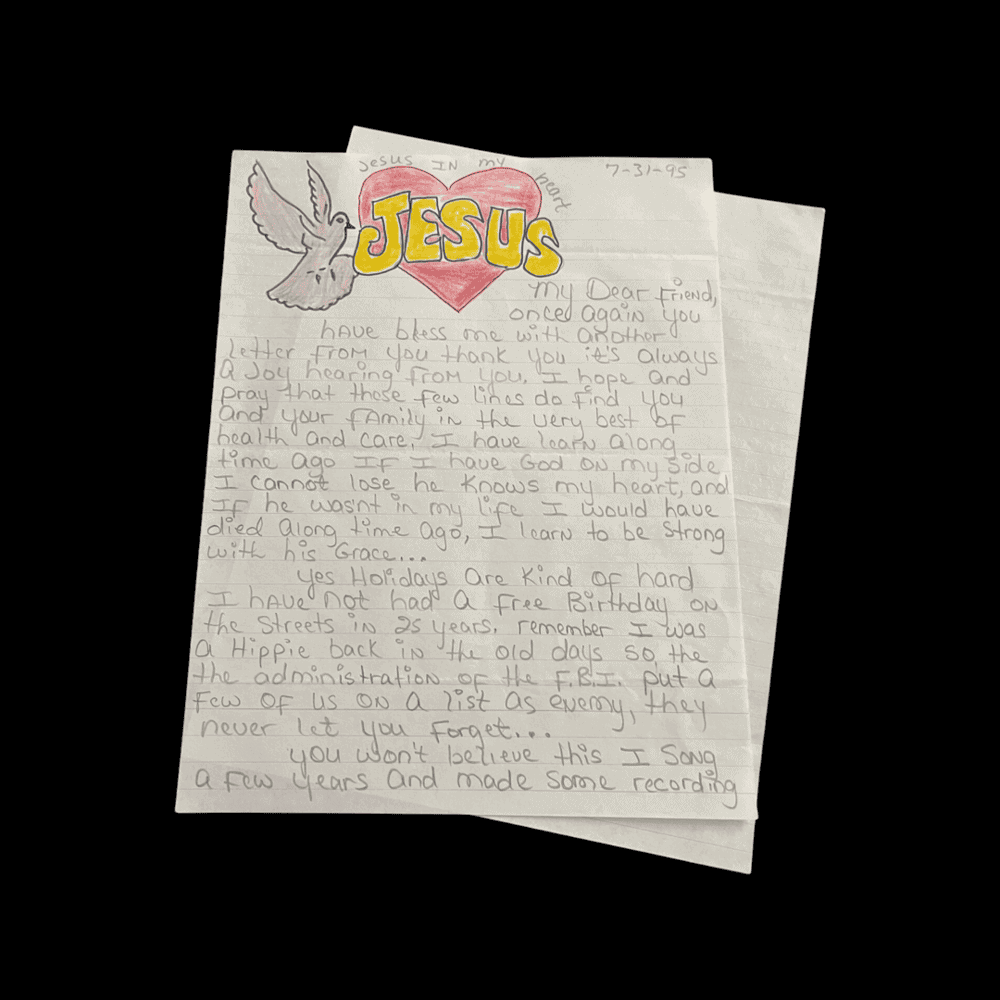 Jesus IN my heart
7-31-95
JESUS
my Dear friend,
once again you
have bless me with another
letter from you thank you it's always
a Joy hearing from you. I hope and
pray that these few lines do find you
and your family in the very best of
health and care. I have learn along
time ago IF I have God on my side
I cannot lose he knows my heart, and
IF he wasnt in my life I would have
died along time ago, I learn to be strong
with his Grace...
yes Holidays are kind of hard
I have not had a free Birthday on
the streets in 25 years. remember I was
a Hippie back in the old days so the
the administration of the F.B.I. put a
few of us on a list as enemy, they
never let you forget...
you won't believe this I Song
a few years and made some recording